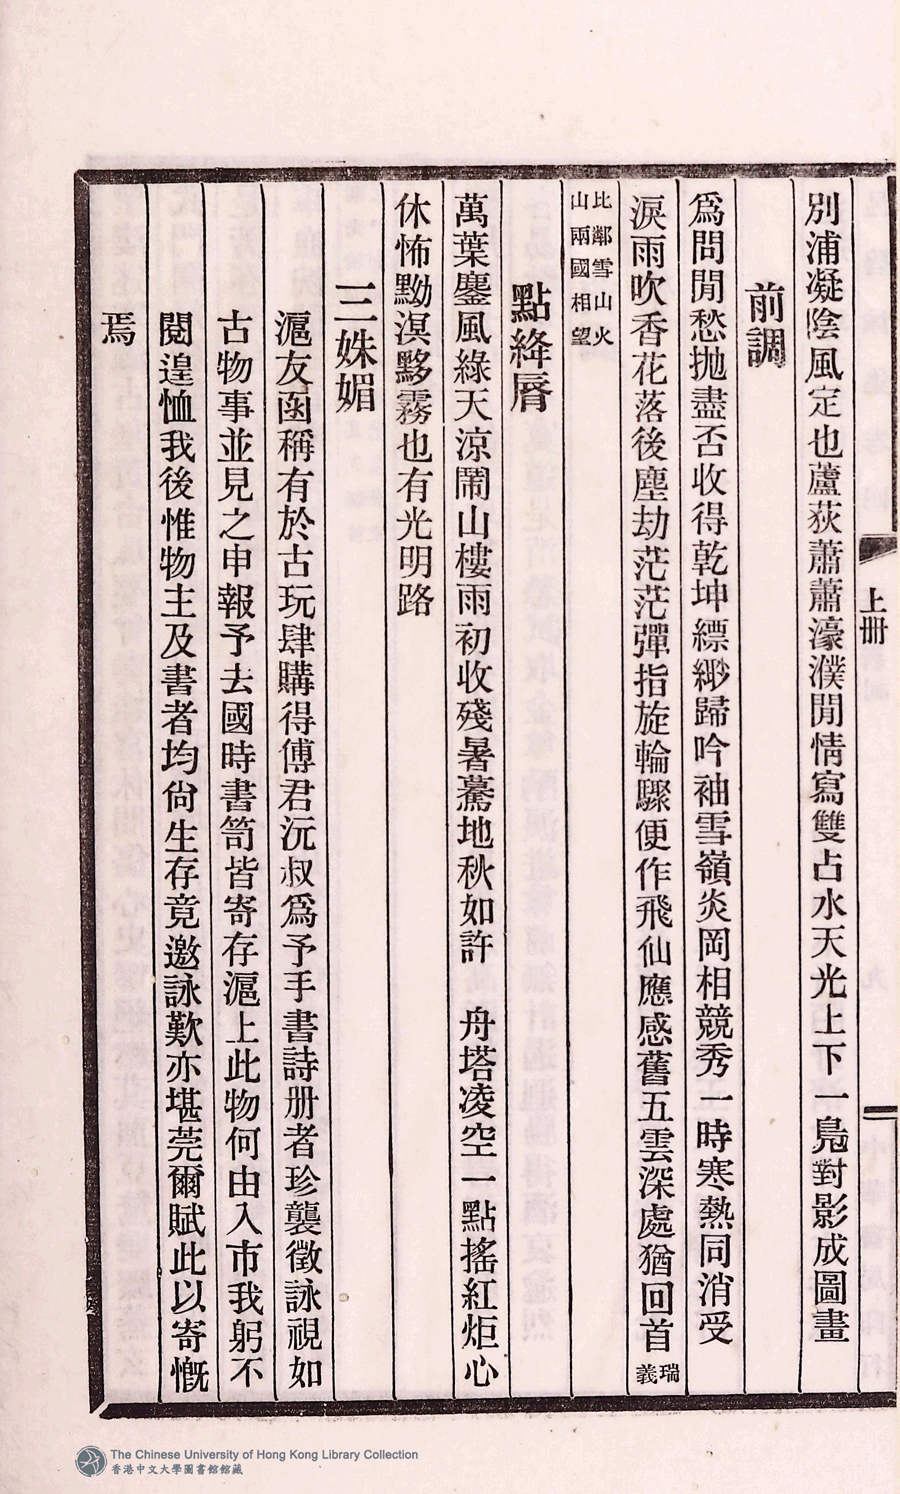 上冊
別浦凝陰風定也蘆荻蕭蕭濠濮閒情寫雙占水天光上下一鳧對影成圖畫
前調
爲問閒愁拋盡否收得乾坤縹緲歸吟袖雪嶺炎岡相競秀一時寒熱同消受
淚雨吹香花落後塵劫茫茫彈指旋輪驟便作飛仙應感舊五雲深處猶回首 瑞義
比鄰雪山火
山兩國相望
點絳脣
萬葉鏖風綠天涼鬧山樓雨初收殘暑驀地秋如許 舟塔凌空一點搖紅炬心
休怖黝溟黟霧也有光明路
三姝媚
滬友函稱有於古玩肆購得傅君沅叔爲予手書詩册者珍襲徵詠視如
古物事並見之申報予去國時書笥皆寄存滬上此物何由入市我躬不
閱遑恤我後惟物主及書者均尙生存竟邀詠歎亦堪莞爾賦此以寄慨
焉
The Chinese University of Hong Kong Library Collection
香港中文大學圖書館館藏